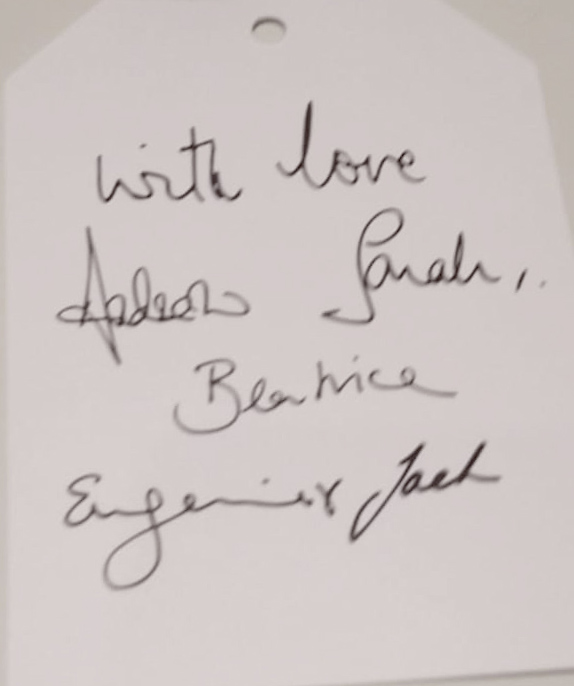 with love
Andrew Sarah,.
Beatrice
Eugenie & Jack